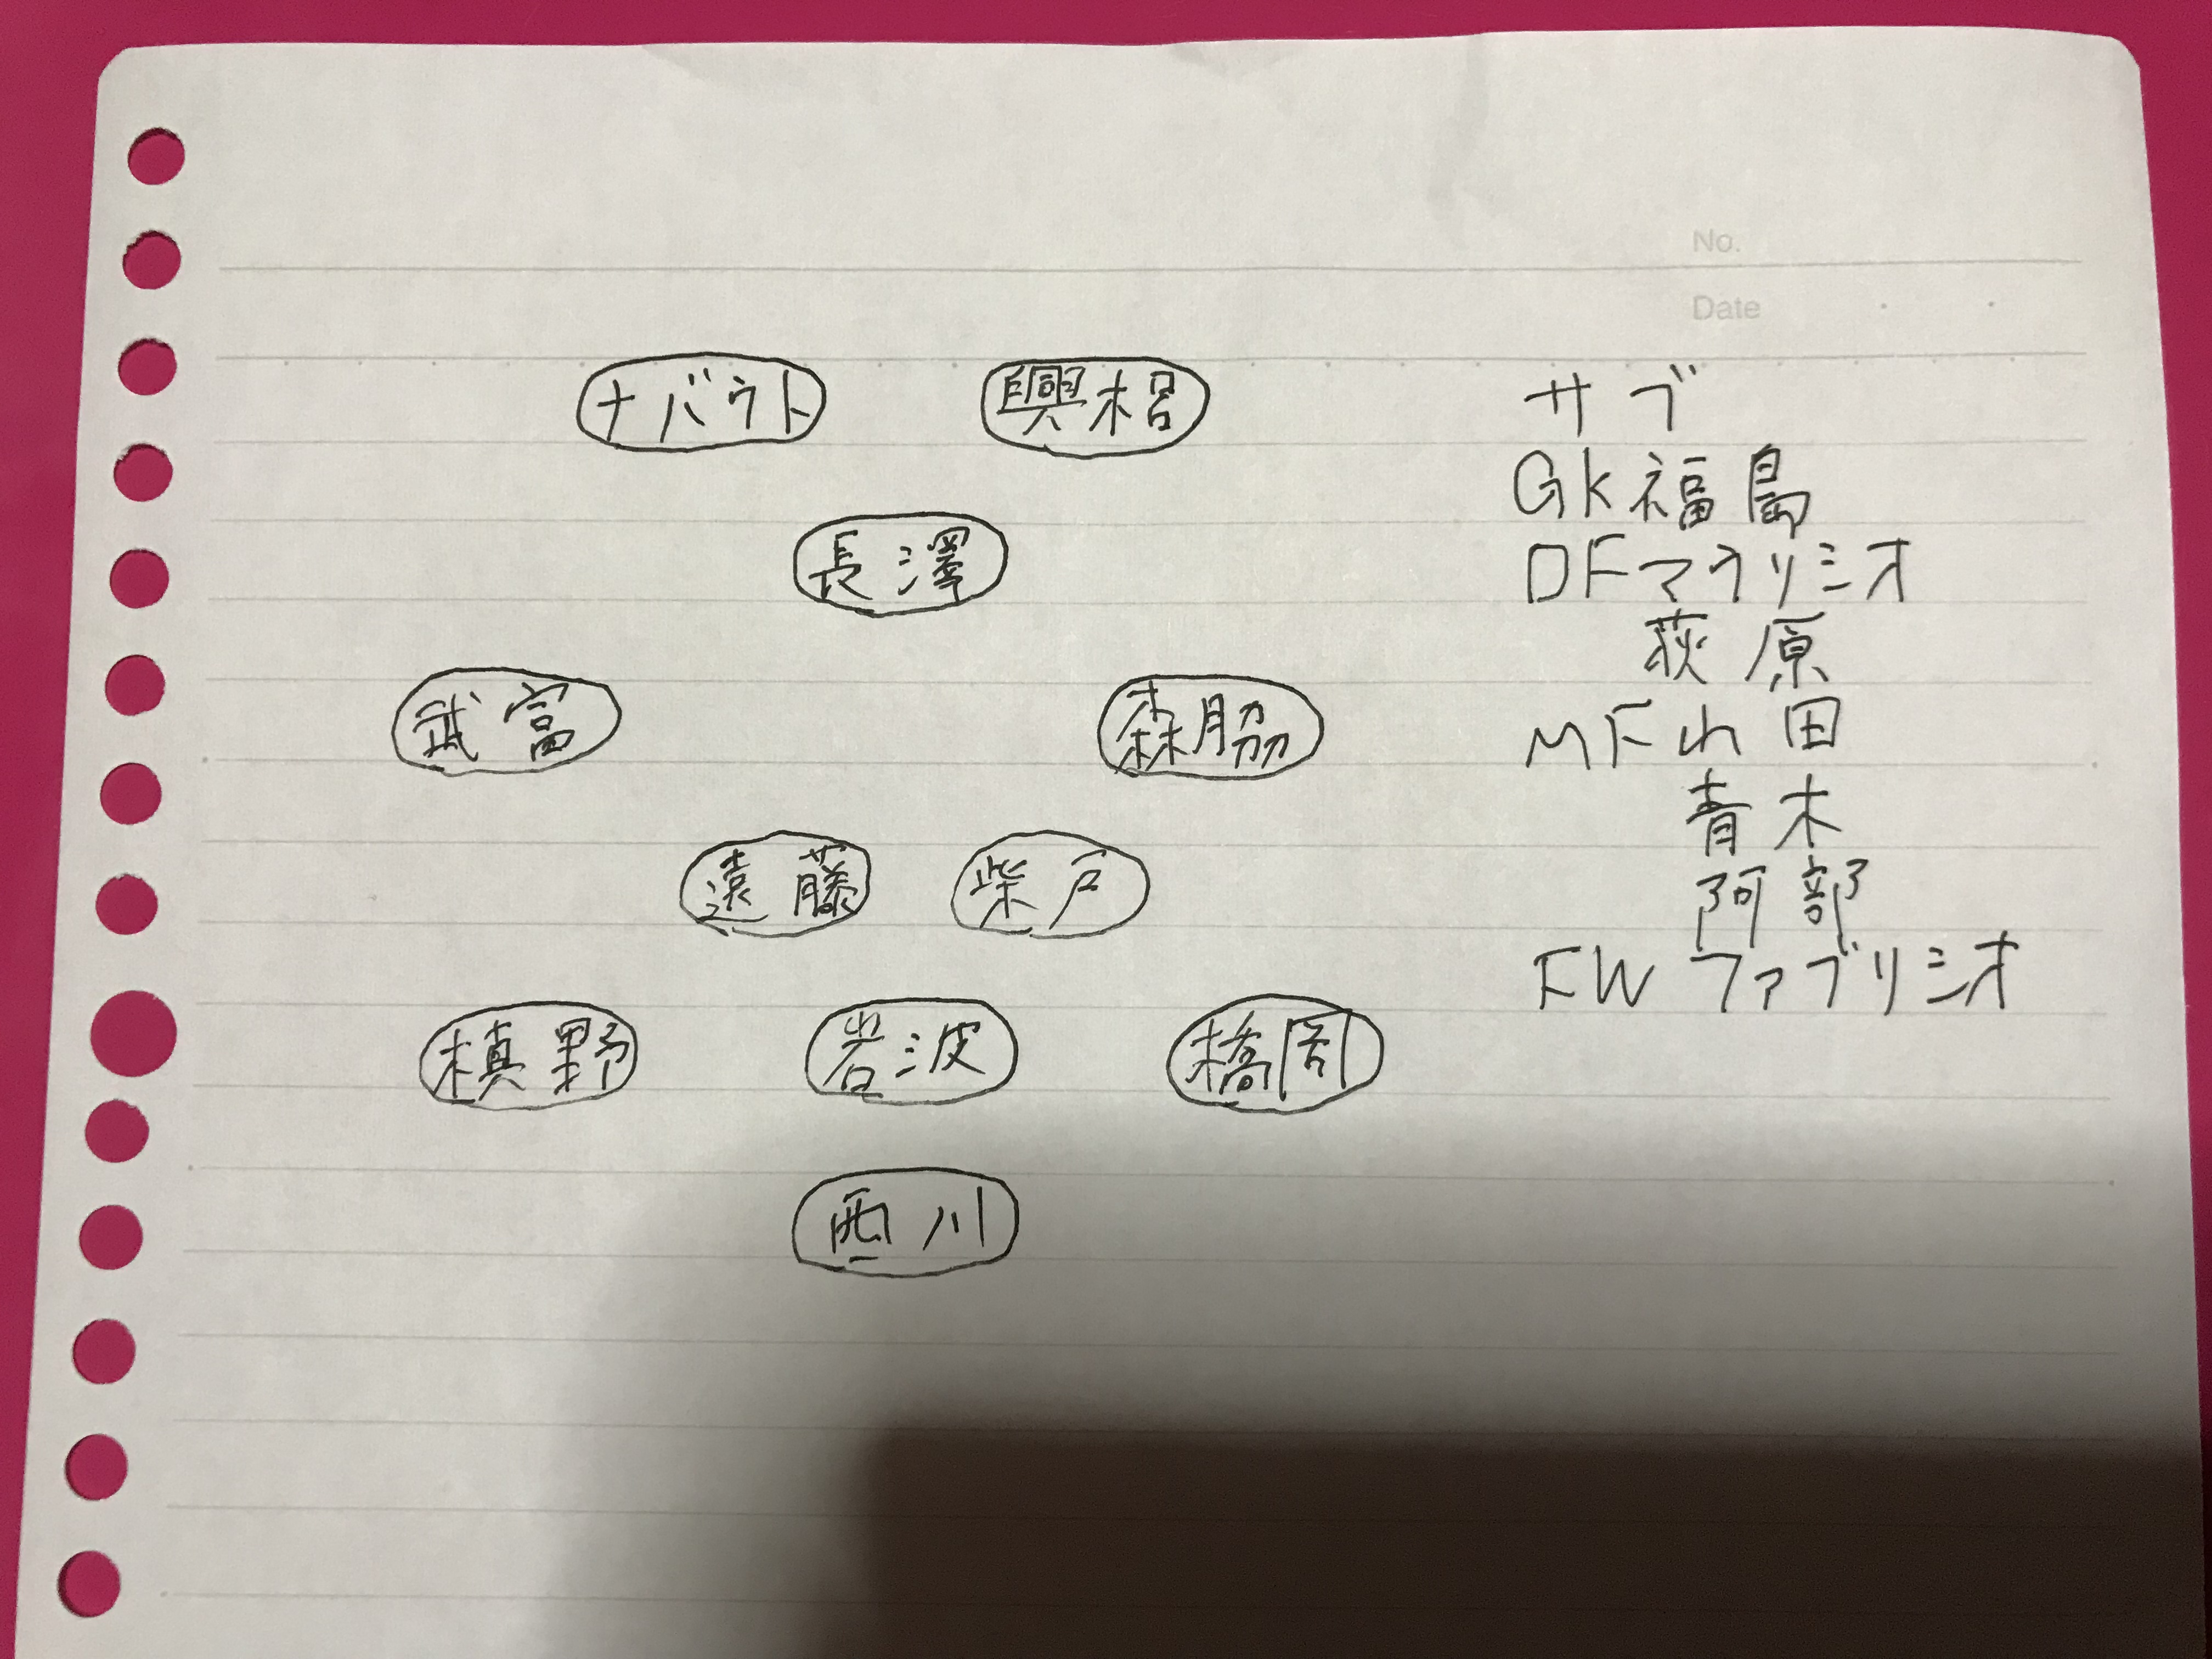 No.
Date
ナバウト 興梠
長澤
武富 森脇
遠藤 柴戸
槙野 岩波 橋岡
西川
サブ
GK福島
DFマウリシオ
荻原
MF山田
青木
阿部
FWファブリシオ